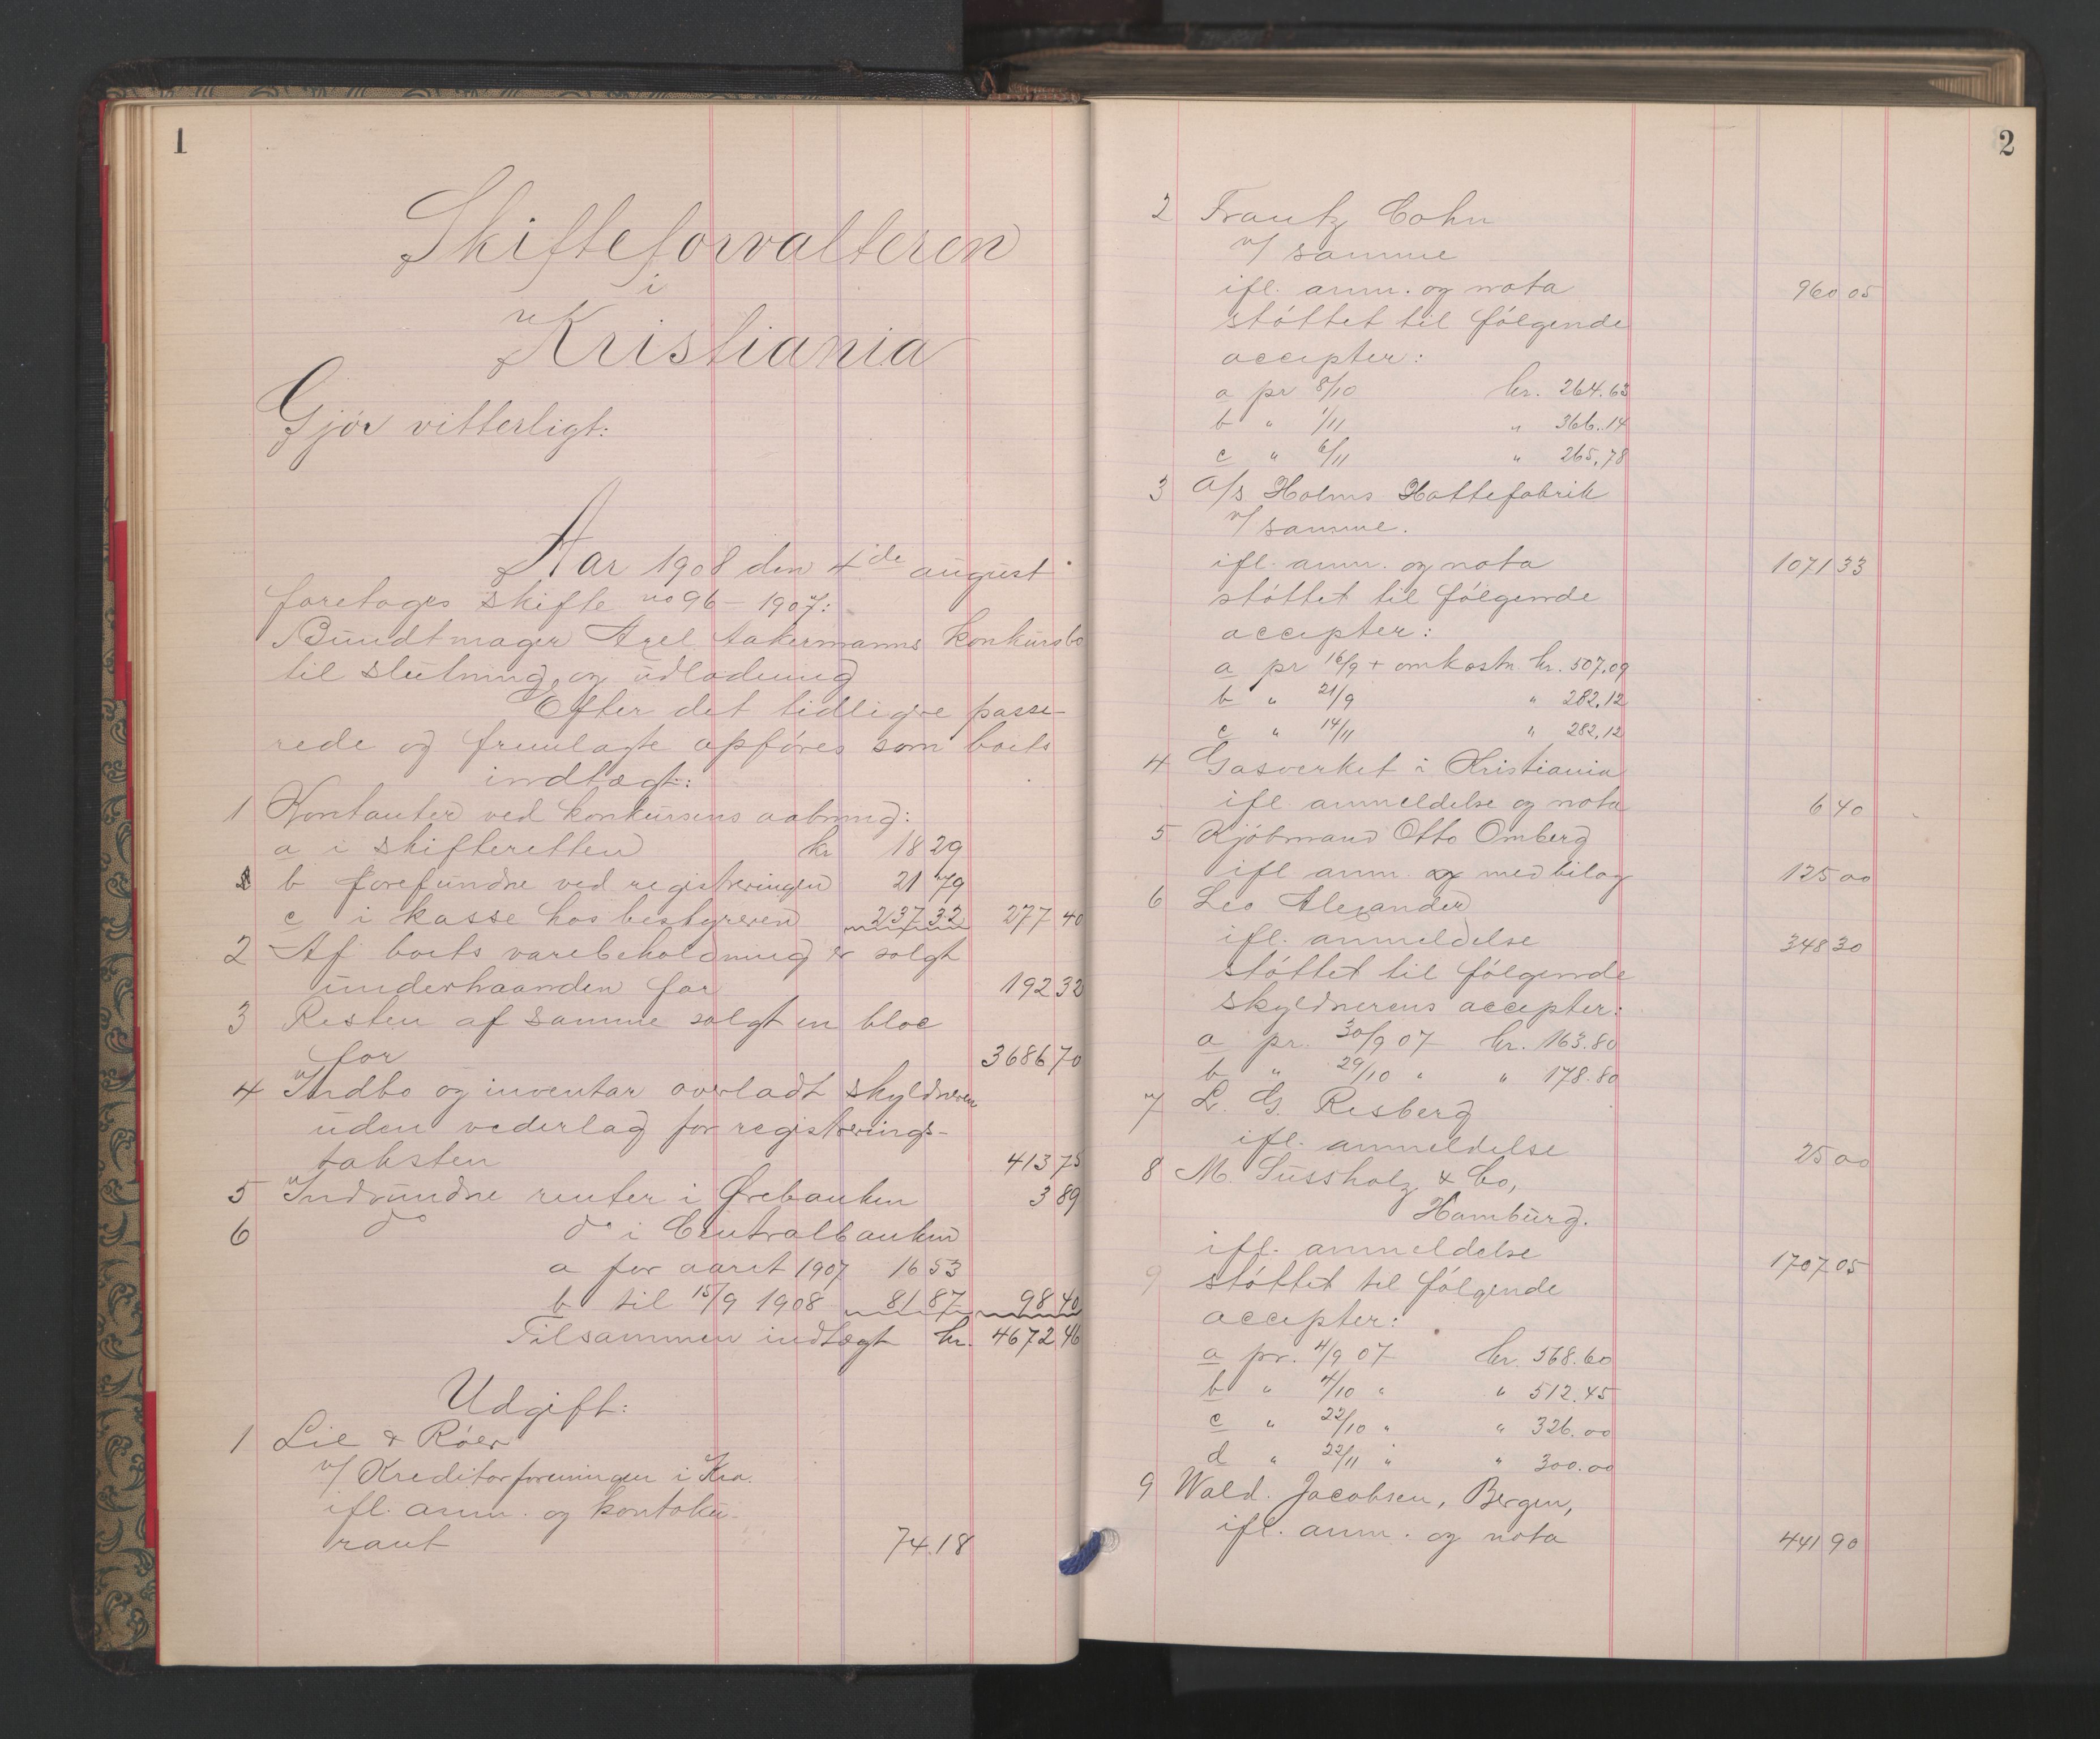 1
Skifteforvalteren
i
Kristiania
Gjør vitterligt:
Aar 1908 den 4de august
foretoges skifte no 96 – 1907:
Bundtmager Axel Aakermanns konkursbo
til slutning og udlodning
Efter det tidligre passe-
rede og fremlagte opføres som boets
indtægt:
1 Kontanter ved konkursens aabning:
a i skifteretten kr 18 29
b forefundne ved registreringen 21 79
c i kasse hos bestyreren 237 32 277 40
2 Af boets varebeholdning er solgt
underhaanden for 192 32
3 Resten af samme solgt en bloc
for 3686 70
4 Indbo og inventar overladt skyldneren
uden vederlag for registrerings-
taksten 413 75
5 Indvundne renter i Ørebanken 3 89
6 do do i Centralbanken
a for aaret 1907 16 53
b til 15/9 1908 81 87 98 40
Tilsammen indtægt kr. 4672 46
Udgift:
1 Lie & Röer
v/ Kreditorforeningen i Kra.
ifl. anm. og kontoku-
rant 74.18
2
2 Frantz Cohn
v/ samme
ifl. anm. og nota 960 05
støttet til følgende
accepter:
a pr 8/10 kr. 264.63
b " 1/11 " 366.14
c " 6/11 " 265,78
3 A/S Holms Hattefabrik
v/ samme.
ifl. anm. og nota 1071 33
støttet til følgende
accepter:
a pr 16/9 + omkostn kr. 507.09
b " 21/9 " 282,12
c " 14/11 " 282,12
4 Gasverket i Kristiania
ifl. anmeldelse og nota 6 40
5 Kjøbmand Otto Omberg
ifl anm. og med bilag 125 00
6 Leo Alexander
ifl. anmeldelse 348 30
støttet til følgende
skyldnerens accepter:
a pr. 30/9 07 kr. 163.80
b " 29/10 " " 178.80
7 L. G. Resberg
ifl. anmeldelse 25 00
8 M. Süssholz & Co,
Hamburg.
ifl. anmeldelse 1707 05
9 støttet til følgende
accepter:
a pr. 4/9 07 kr. 568.60
b " 4/10 " " 512.45
c " 22/10 " " 326.00
d " 22/11 " " 300.00
9 Wald. Jacobsen, Bergen,
ifl. anm. og nota 441 90